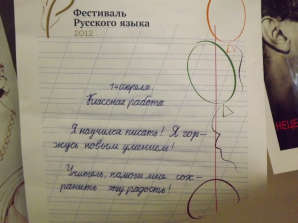 Фестиваль
Русского языка
2012
14 апреля.
Классная работа.
Я научился писать! Я гор-
жусь новым умением!
Учитель, помоги мне сох-
ранить эту радость!
НЕЦЕ